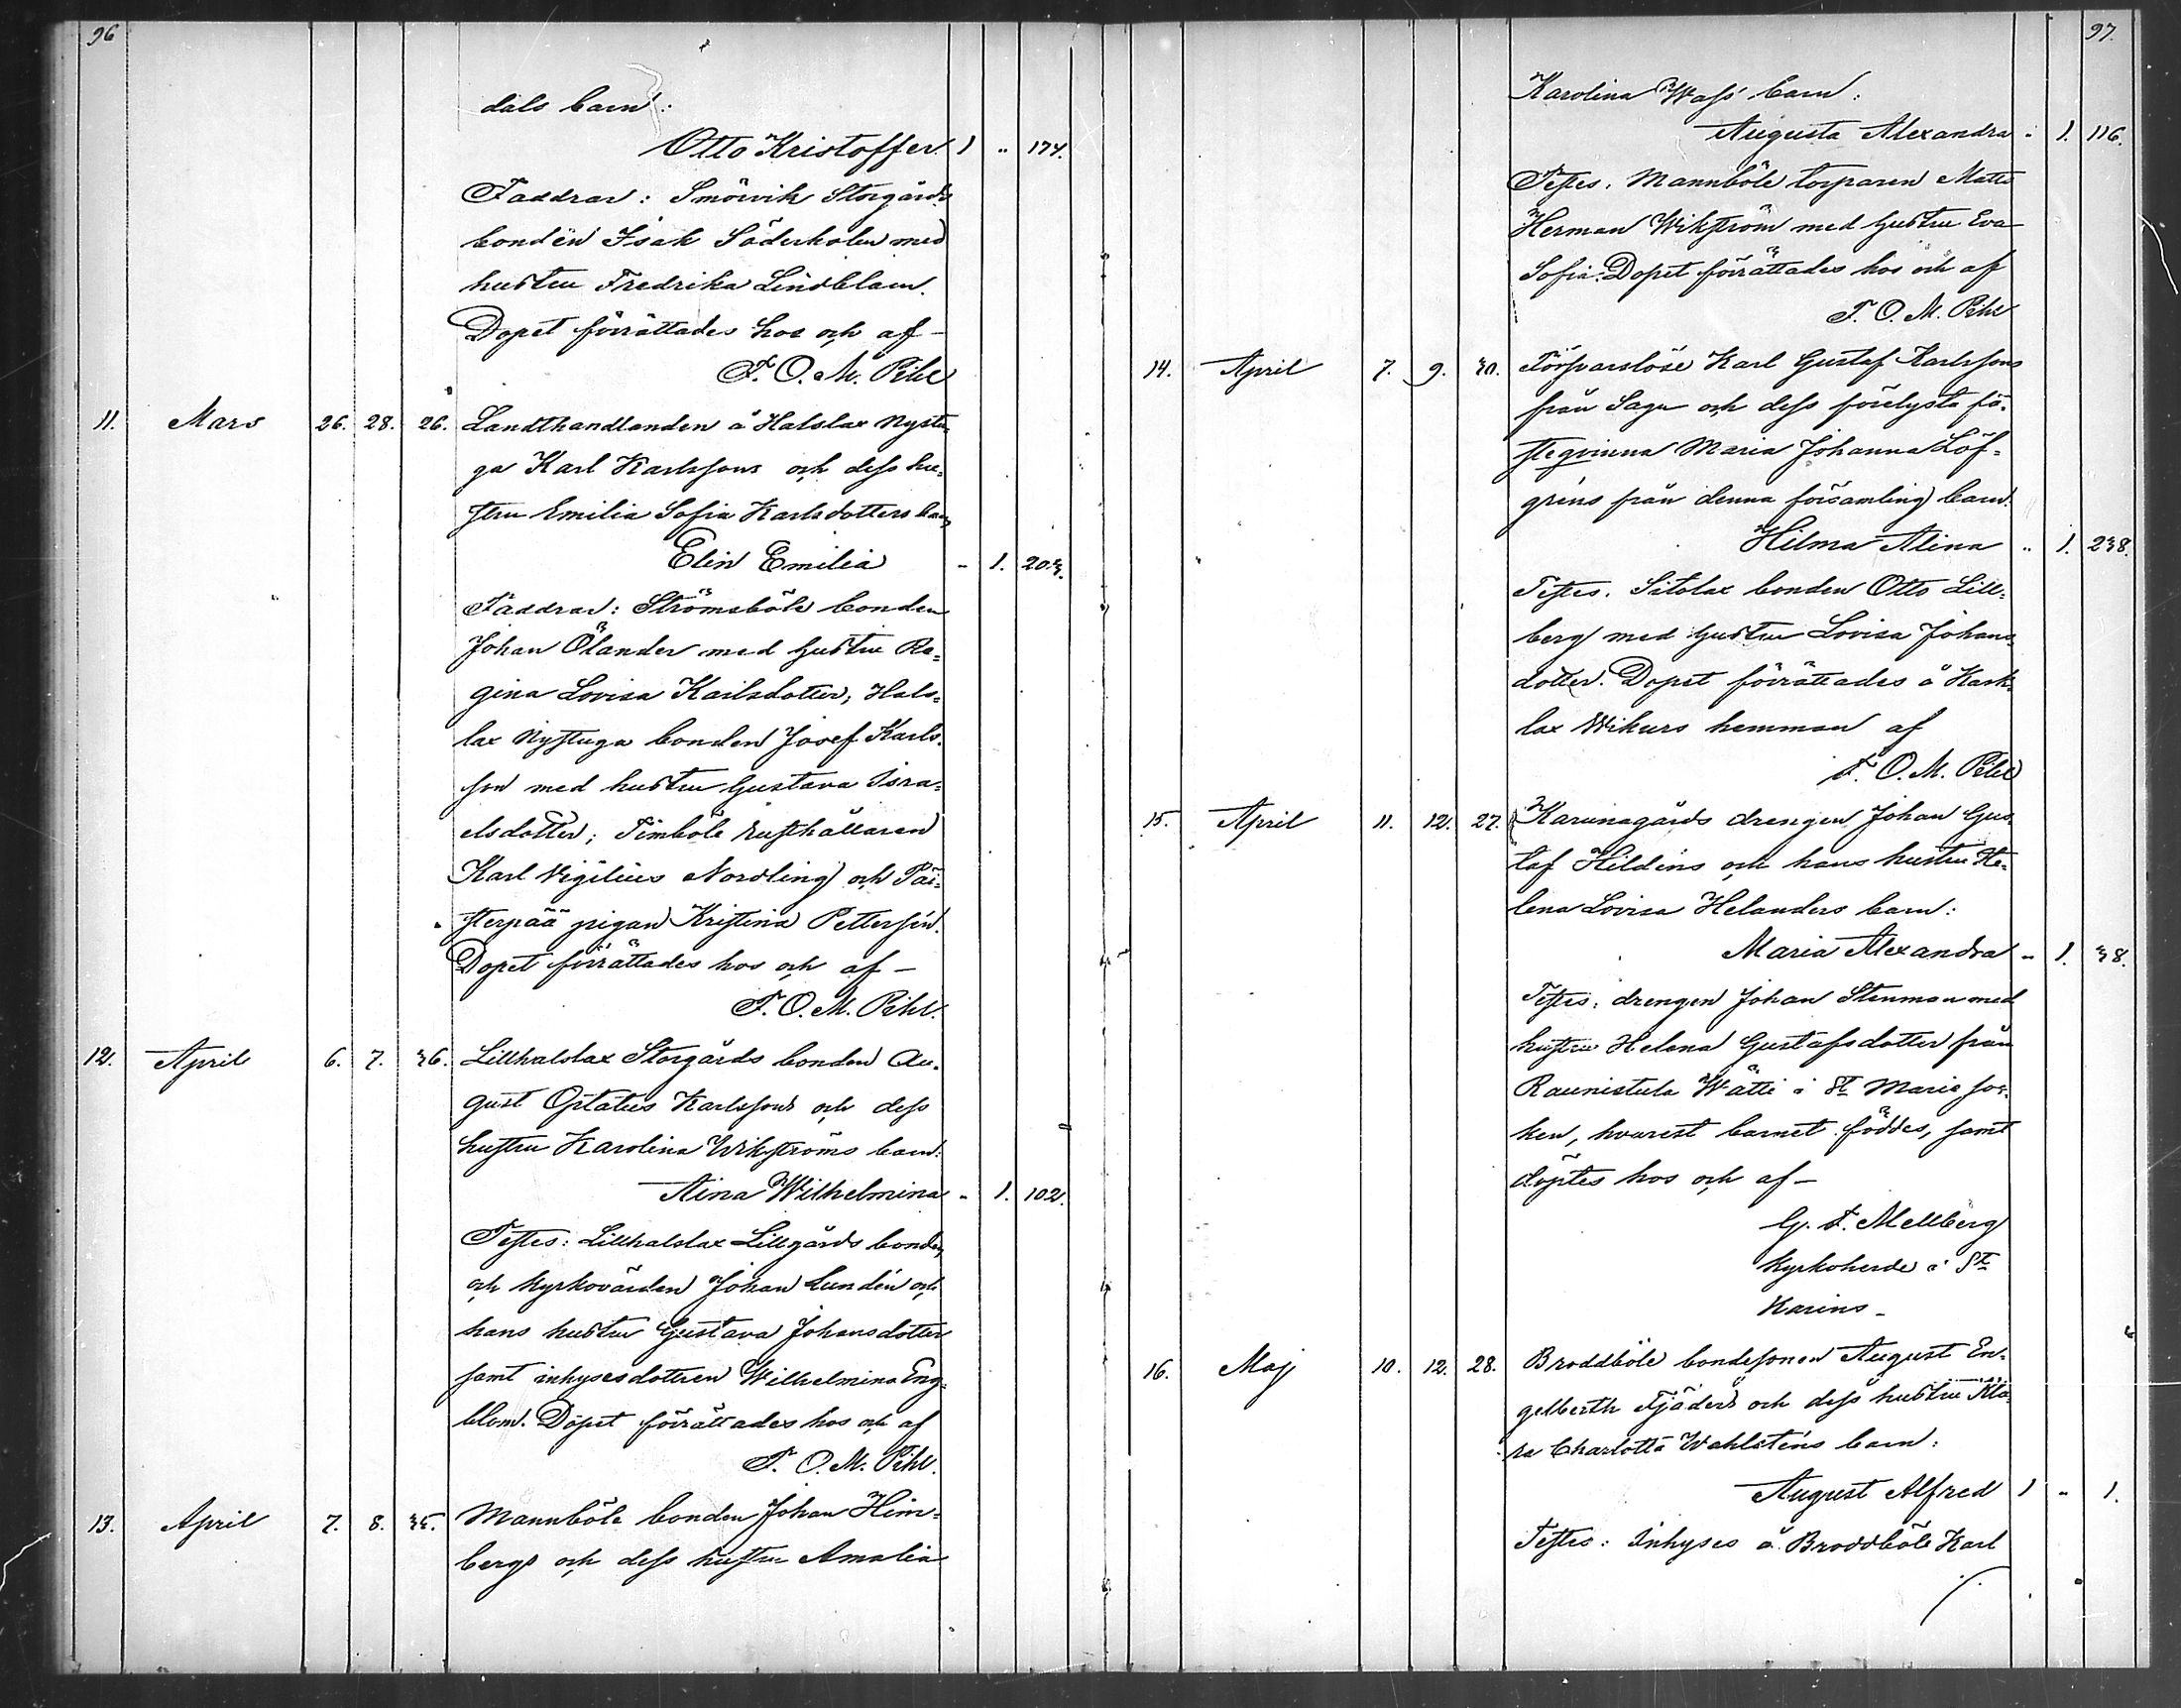 96
dals barn:
Otto Kristoffer 1 " 174.
Faddrar: Smörvik Storgårds
bonden Isak Söderholm med
hustru Fredrika Lindblom.
Dopet förrättades hos och af –
F. O. M. Pihl
11. Mars 26. 28. 26. Landthandlanden å Halslax Nystu-
ga Karl Karlssons och dess hu-
stru Emilia Sofia Karlsdotters barn
Elin Emilia - 1. 203.
Faddrar: Strömsböle bonden
Johan Ölander med hustru Re-
gina Lovisa Karlsdotter, Hals-
lax Nystuga bonden Josef Karls-
son med hustru Gustava Isra-
elsdotter; Timböle rusthållaren
Karl Vigilius Nordling och Päi-
sterpää pigan Kristina Pettersén.
Dopet förrättades hos och af –
F. O. M. Pihl.
12. April 6. 7. 36. Lillhalslax Storgårds bonden Au-
gust Optatus Karlssons och dess
hustru Karolina Wikströms barn:
Aina Wilhelmina " 1. 102.
Testes: Lillhalslax Lillgårds bonden
och kyrkovärden Johan Lundén och
hans hustru Gustava Johansdotter
samt inhysesdottren Wilhelmina Eng-
blom. Dopet förrättades hos och af
F. O. M. Pihl.
13. April 7. 8. 35. Mannböle bonden Johan Heim-
bergs och dess hustru Amalia
97.
Karolina Wass' barn:
Augusta Alexandra " 1. 116.
Testes. Mannböle torparen Matts
Herman Wikström med hustru Eva
Sofia. Dopet förrättades hos och af
F. O. M. Pihl
14. April 7. 9. 30. Försvarslöse Karl Gustaf Karlssons
från Sagu och dess förelysta fä-
steqvinna Maria Johanna Löf-
gréns från denna församling barn:
Hilma Alina " 1. 238.
Testes. Sitolax bonden Otto Lill-
berg med hustru Lovisa Johans-
dotter. Dopet förrättades å Kark-
lax Wikurs hemman af
F. O. M. Pihl
15. April 11. 12. 27. Karunagårds drengen Johan Gus-
taf Hildéns och hans hustru He-
lena Lovisa Helanders barn:
Maria Alexandra " 1. 38.
Testes: drengen Johan Stenman med
hustru Helena Gustafsdotter från
Raunistula Wätti i St Marie soc-
ken, hvarest barnet föddes, samt
döptes hos och af –
G. F. Mellberg
Kyrkoherde i St
Karins –
16. Maj 10. 12. 28. Broddböle bondesonen August En-
gelberth Fjäders och dess hustru Kla-
ra Charlotta Wahlsténs barn:
August Alfred 1 " 1.
Testes: Inhyses å Broddböle Karl